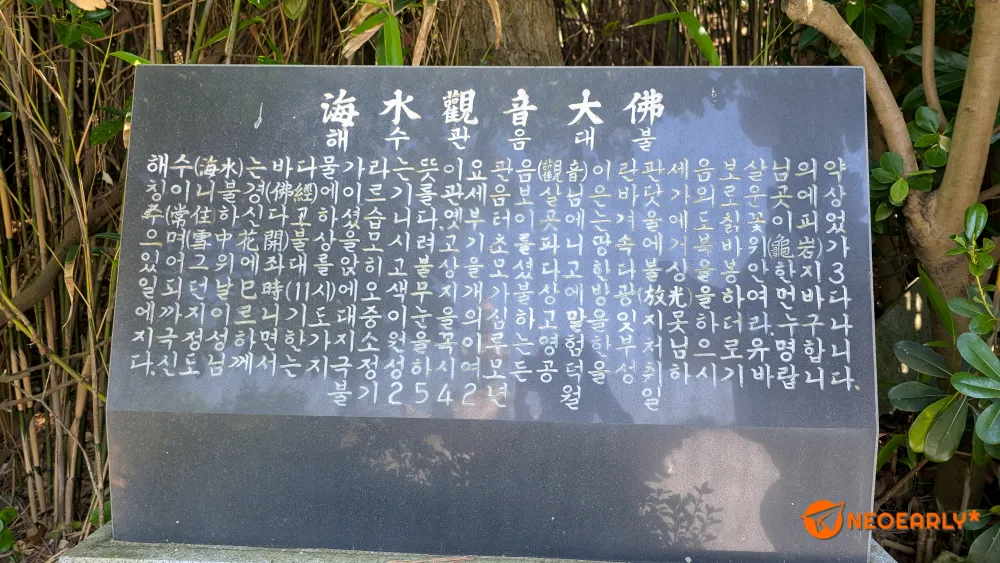 海水觀音大佛
해수관음대불
해수(海水)는 바다물 가라는 뜻이요 관음(觀音)이란 관세음보살님의 약
칭이니 불경(佛經)에 이르기를 관세음보살은 바닷가의 로운 곳에 상
주(常住)하신다고 하셨습니다 옛부터 이곳에는 겨울에도 칡꽃이 피었
으며(雪中花開)불상을 모시려고 기초를 파니 땅속에 거북바위(龜岩)가
있어 그 위에 좌대를 앉히고 불상을 모셨다고 한다 불상을 봉안한지 3
일되던 날 巳時(11시)에 오색무지개가 상에 방광(放光)하여 먼 바다
에까지 이르니 도 대중이 눈을 의심하고 말을 잇지 못하더라. 누구나
지극정성 하면 한가지 소원을 꼭 이루는 영험하 부처님으로 유명합니
다. 신도님께서는 지극정성 기도하시여 모든 공덕을 성취하시기 바랍니다.
불기 2542년 월 일
NEOEARLY*